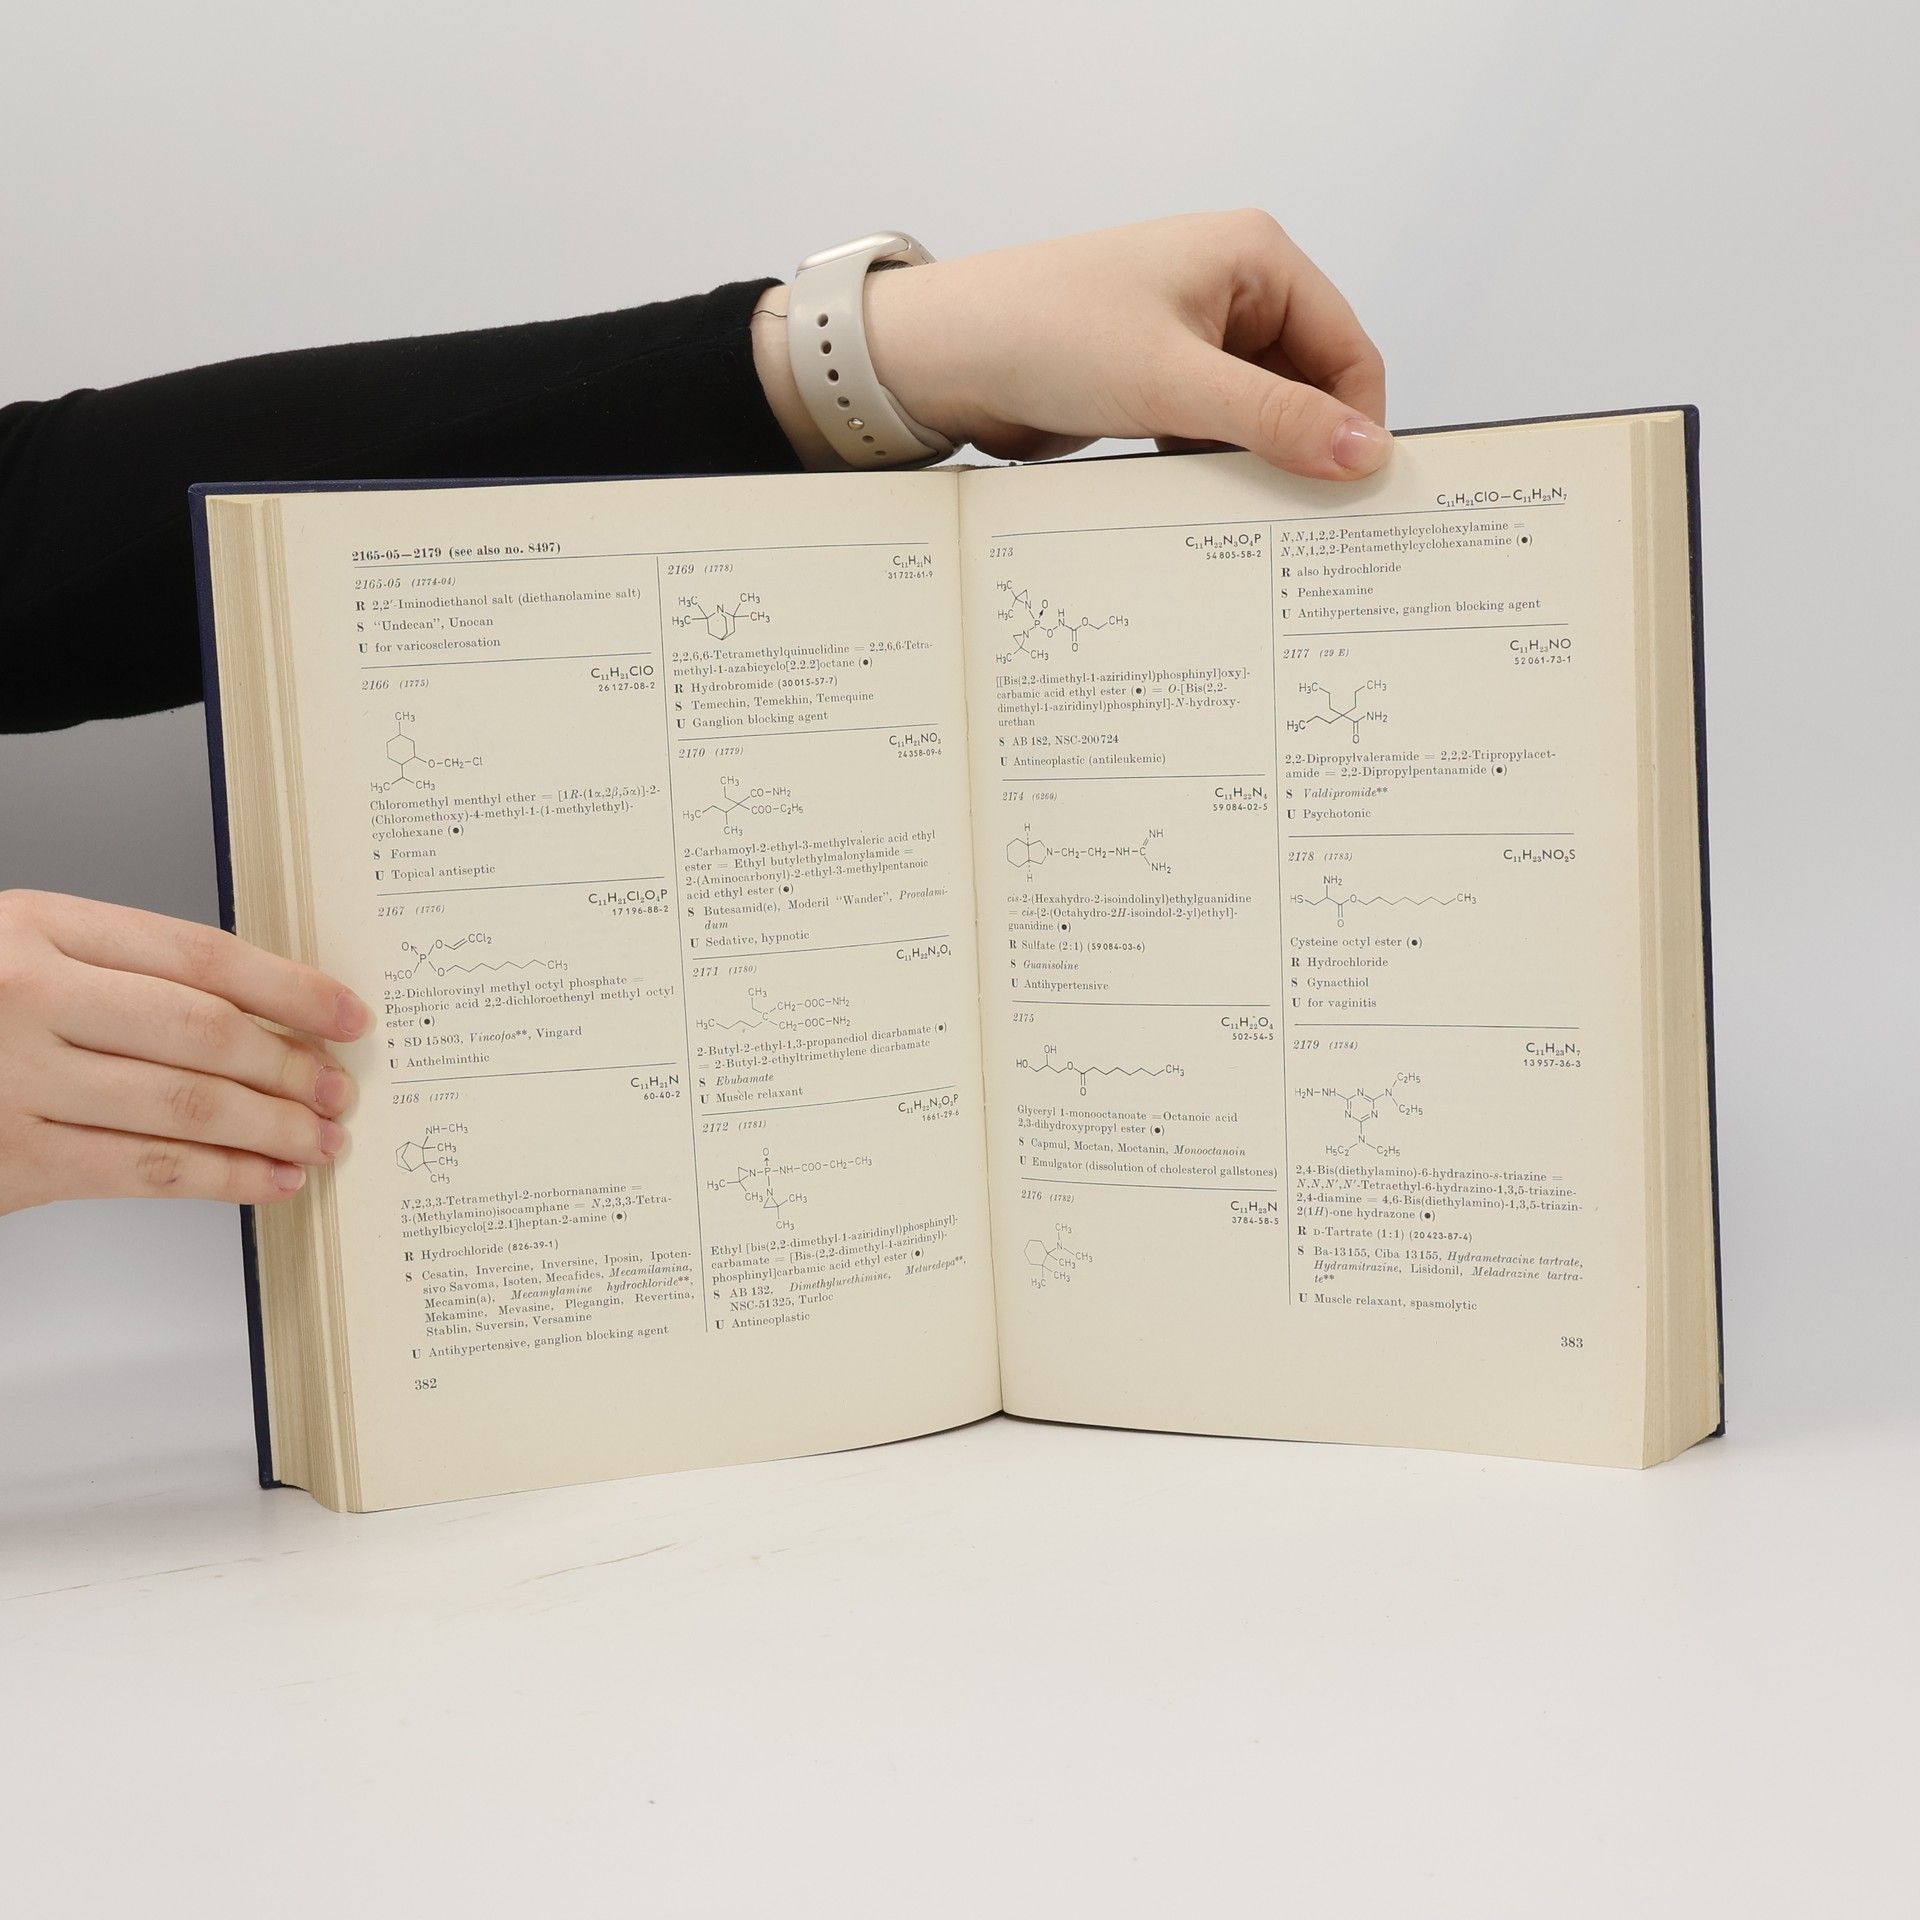 2165-05—2179 (see also no. 8497)
2165-05 (1774-04)
R 2,2′-Iminodiethanol salt (diethanolamine salt)
S "Undecan", Unocan
U for varicosclerosation
C₁₁H₂₁ClO
2166 (1775)
26127-08-2
CH₃
O—CH₂—Cl
H₃C CH₃
Chloromethyl menthyl ether = [1R-(1α,2β,5α)]-2-
(Chloromethoxy)-4-methyl-1-(1-methylethyl)-
cyclohexane (●)
S Forman
U Topical antiseptic
C₁₁H₂₁Cl₂O₄P
2167 (1776)
17196-88-2
O O CCl₂
P
H₃CO O CH₃
2,2-Dichlorovinyl methyl octyl phosphate =
Phosphoric acid 2,2-dichloroethenyl methyl octyl
ester (●)
S SD 15803, Vincofos**, Vingard
U Anthelminthic
C₁₁H₂₁N
2168 (1777)
60-40-2
NH—CH₃
CH₃
CH₃
CH₃
N,2,3,3-Tetramethyl-2-norbornanamine =
3-(Methylamino)isocamphane = N,2,3,3-Tetra-
methylbicyclo[2.2.1]heptan-2-amine (●)
R Hydrochloride (826-39-1)
S Cesatin, Invercine, Inversine, Iposin, Ipoten-
sivo Savoma, Isoten, Mecafides, Mecamilamina,
Mecamin(a), Mecamylamine hydrochloride**,
Mekamine, Mevasine, Plegangin, Revertina,
Stablin, Suversin, Versamine
U Antihypertensive, ganglion blocking agent
382
C₁₁H₂₁N
2169 (1778)
31722-61-9
H₃C N CH₃
H₃C CH₃
2,2,6,6-Tetramethylquinuclidine = 2,2,6,6-Tetra-
methyl-1-azabicyclo[2.2.2]octane (●)
R Hydrobromide (30015-57-7)
S Temechin, Temekhin, Temequine
U Ganglion blocking agent
C₁₁H₂₁NO₃
2170 (1779)
24358-09-6
CH₃
CO—NH₂
H₃C COO—C₂H₅
CH₃
2-Carbamoyl-2-ethyl-3-methylvaleric acid ethyl
ester = Ethyl butylethylmalonylamide =
2-(Aminocarbonyl)-2-ethyl-3-methylpentanoic
acid ethyl ester (●)
S Butesamid(e), Moderil "Wander", Provalami-
dum
U Sedative, hypnotic
C₁₁H₂₂N₂O₄
2171 (1780)
CH₃
CH₂—OOC—NH₂
H₃C CH₂—OOC—NH₂
2-Butyl-2-ethyl-1,3-propanediol dicarbamate (●)
= 2-Butyl-2-ethyltrimethylene dicarbamate
S Ebubamate
U Muscle relaxant
C₁₁H₂₂N₃O₃P
2172 (1781)
1661-29-6
O
N—P—NH—COO—CH₂—CH₃
H₃C
CH₃ N CH₃
CH₃
Ethyl [bis(2,2-dimethyl-1-aziridinyl)phosphinyl]-
carbamate = [Bis-(2,2-dimethyl-1-aziridinyl)-
phosphinyl]carbamic acid ethyl ester (●)
S AB 132, Dimethylurethimine, Meturedepa**,
NSC-51325, Turloc
U Antineoplastic
C₁₁H₂₁ClO—C₁₁H₂₃N₇
C₁₁H₂₂N₃O₄P
2173
54805-58-2
H₃C
H₃C N O H
P O N O CH₃
N O
H₃C CH₃
[[Bis(2,2-dimethyl-1-aziridinyl)phosphinyl]oxy]-
carbamic acid ethyl ester (●) = O-[Bis(2,2-
dimethyl-1-aziridinyl)phosphinyl]-N-hydroxy-
urethan
S AB 182, NSC-200724
U Antineoplastic (antileukemic)
C₁₁H₂₂N₄
2174 (6260)
59084-02-5
H
NH
N—CH₂—CH₂—NH—C
NH₂
H
cis-2-(Hexahydro-2-isoindolinyl)ethylguanidine
= cis-[2-(Octahydro-2H-isoindol-2-yl)ethyl]-
guanidine (●)
R Sulfate (2:1) (59084-03-6)
S Guanisoline
U Antihypertensive
2175
C₁₁H₂₂O₄
502-54-5
OH
HO O CH₃
O
Glyceryl 1-monooctanoate =Octanoic acid
2,3-dihydroxypropyl ester (●)
S Capmul, Moctan, Moctanin, Monooctanoin
U Emulgator (dissolution of cholesterol gallstones)
2176 (1782)
C₁₁H₂₃N
3784-58-5
CH₃
N CH₃
CH₃
CH₃
H₃C
N,N,1,2,2-Pentamethylcyclohexylamine =
N,N,1,2,2-Pentamethylcyclohexanamine (●)
R also hydrochloride
S Penhexamine
U Antihypertensive, ganglion blocking agent
2177 (29 E)
C₁₁H₂₃NO
52061-73-1
H₃C CH₃
H₃C NH₂
O
2,2-Dipropylvaleramide = 2,2,2-Tripropylacet-
amide = 2,2-Dipropylpentanamide (●)
S Valdipromide**
U Psychotonic
2178 (1783)
C₁₁H₂₃NO₂S
NH₂
HS O CH₃
O
Cysteine octyl ester (●)
R Hydrochloride
S Gynacthiol
U for vaginitis
2179 (1784)
C₁₁H₂₃N₇
13957-36-3
C₂H₅
H₂N—NH N N
N N C₂H₅
N
H₅C₂ C₂H₅
2,4-Bis(diethylamino)-6-hydrazino-s-triazine =
N,N,N′,N′-Tetraethyl-6-hydrazino-1,3,5-triazine-
2,4-diamine = 4,6-Bis(diethylamino)-1,3,5-triazin-
2(1H)-one hydrazone (●)
R D-Tartrate (1:1) (20423-87-4)
S Ba-13155, Ciba 13155, Hydrametracine tartrate,
Hydramitrazine, Lisidonil, Meladrazine tartra-
te**
U Muscle relaxant, spasmolytic
383